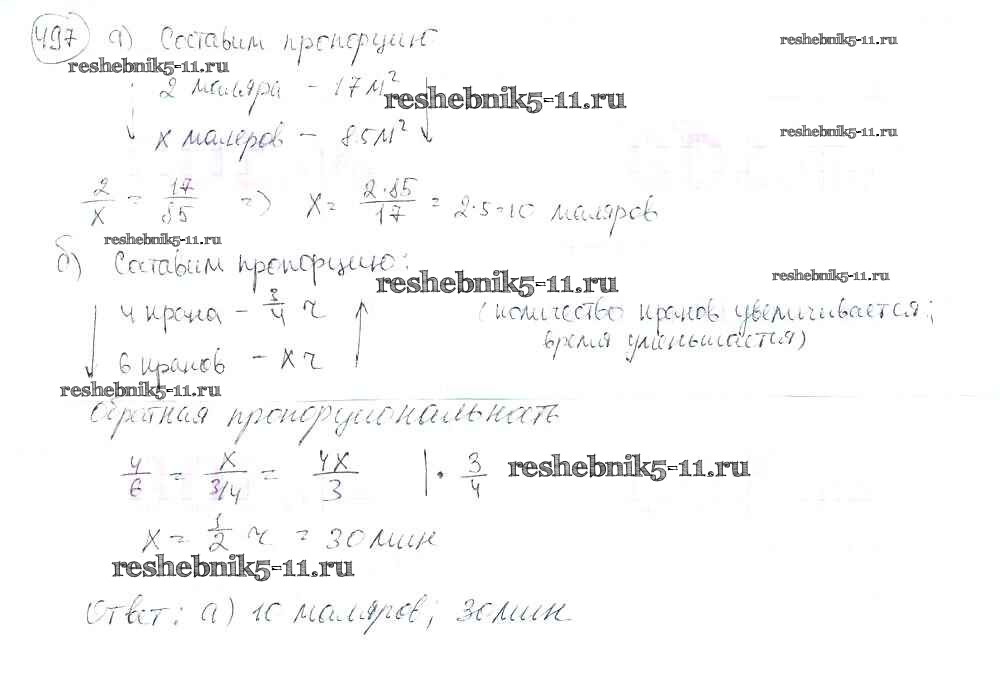 497 а) Составим пропорцию
reshebnik5-11.ru
reshebnik5-11.ru
2 маляра - 17 м²
reshebnik5-11.ru
х маляров - 85 м²
reshebnik5-11.ru
2/х = 17/85 => х = 2·85/17 = 2·5=10 маляров
reshebnik5-11.ru
б) Составим пропорцию:
reshebnik5-11.ru
reshebnik5-11.ru
4 крана - 3/4 ч (количество кранов увеличивается;
время уменьшается)
6 кранов - х ч
reshebnik5-11.ru
Обратная пропорциональность
4/6 = х/3/4 = 4х/3 | · 3/4
reshebnik5-11.ru
х = 1/2 ч = 30 мин
reshebnik5-11.ru
Ответ: а) 10 маляров; 30 мин